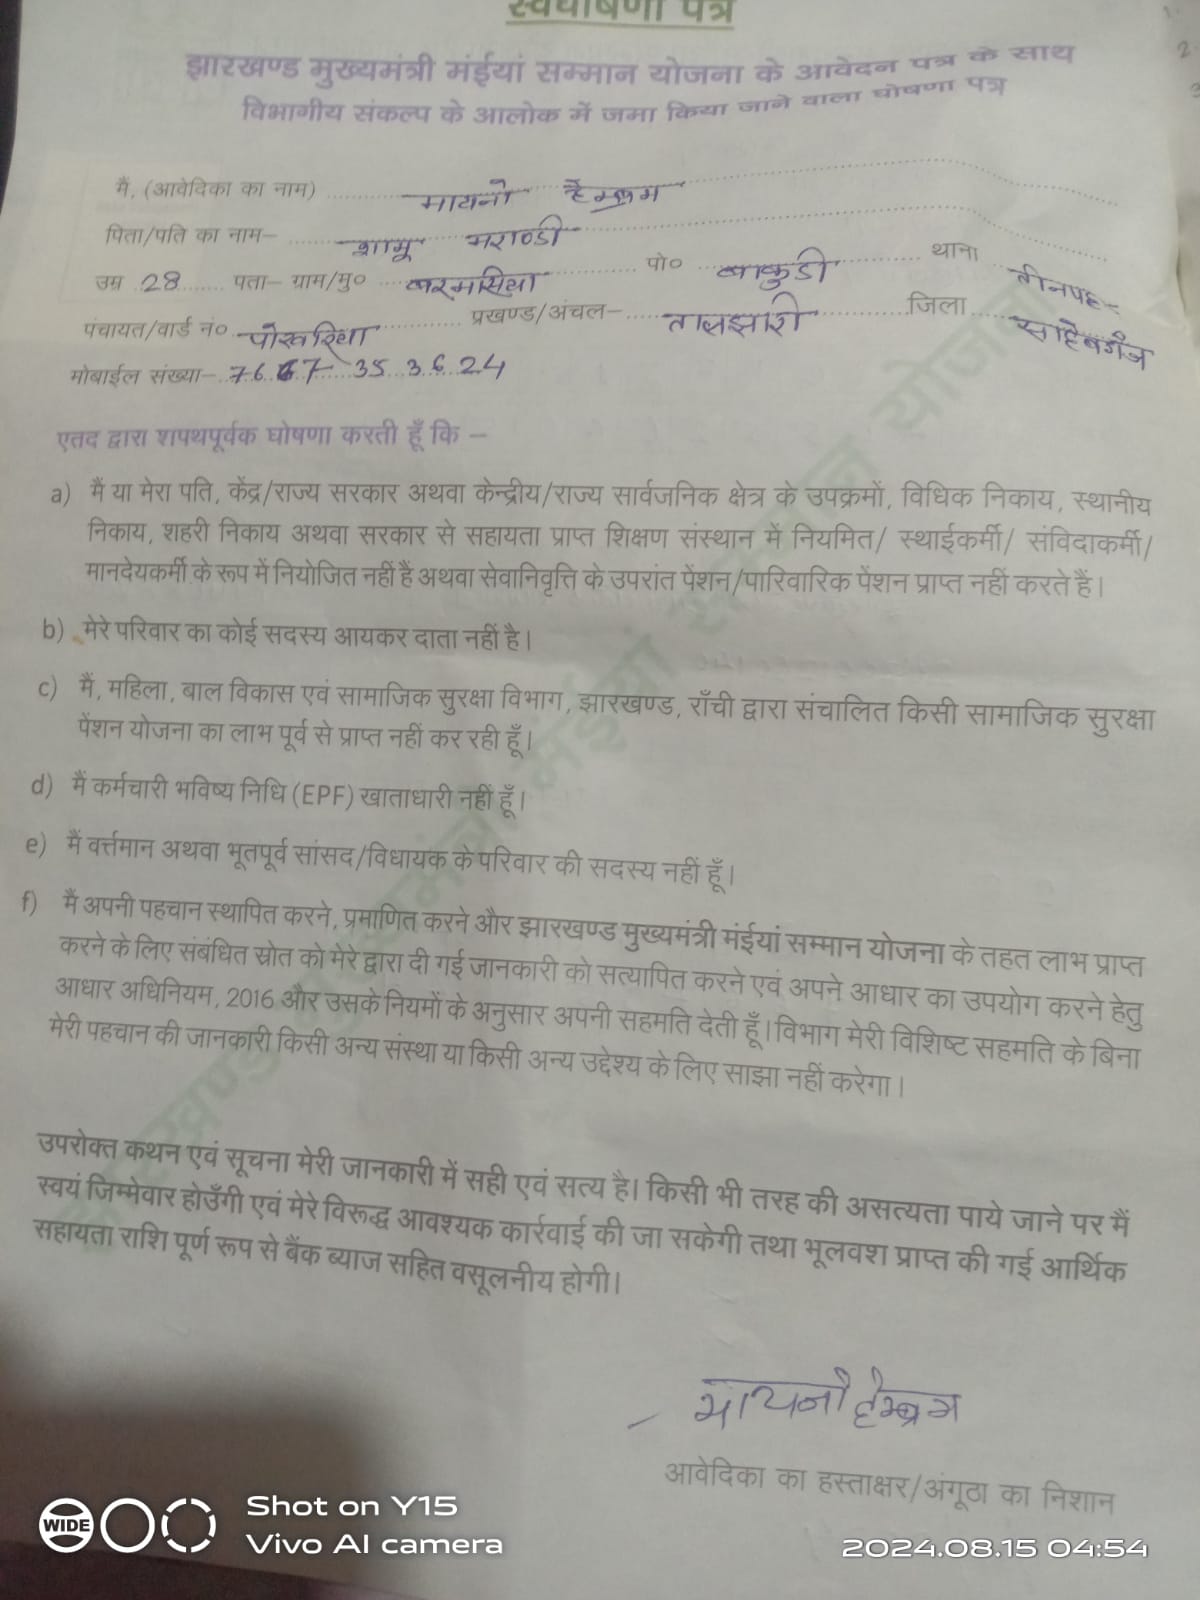 स्वघोषणा पत्र
झारखण्ड मुख्यमंत्री मंईयां सम्मान योजना के आवेदन पत्र के साथ
विभागीय संकल्प के आलोक में जमा किया जाने वाला घोषणा पत्र
मैं, (आवेदिका का नाम) मायनो हेम्ब्रम
पिता/पति का नाम– शामू मराण्डी
उम्र 28 पता– ग्राम/मु० बरमसिया पो० बाकुडी थाना तीनपहाड़
पंचायत/वार्ड नं० पोखरिया प्रखण्ड/अंचल– तालझारी जिला साहेबगंज
मोबाईल संख्या– 7667353624
एतद द्वारा शपथपूर्वक घोषणा करती हूँ कि –
a) मैं या मेरा पति, केंद्र/राज्य सरकार अथवा केन्द्रीय/राज्य सार्वजनिक क्षेत्र के उपक्रमों, विधिक निकाय, स्थानीय
निकाय, शहरी निकाय अथवा सरकार से सहायता प्राप्त शिक्षण संस्थान में नियमित/ स्थाईकर्मी/ संविदाकर्मी/
मानदेयकर्मी के रूप में नियोजित नहीं हैं अथवा सेवानिवृत्ति के उपरांत पेंशन/पारिवारिक पेंशन प्राप्त नहीं करते हैं।
b) मेरे परिवार का कोई सदस्य आयकर दाता नहीं है।
c) मैं, महिला, बाल विकास एवं सामाजिक सुरक्षा विभाग, झारखण्ड, राँची द्वारा संचालित किसी सामाजिक सुरक्षा
पेंशन योजना का लाभ पूर्व से प्राप्त नहीं कर रही हूँ।
d) मैं कर्मचारी भविष्य निधि (EPF) खाताधारी नहीं हूँ।
e) मैं वर्त्तमान अथवा भूतपूर्व सांसद/विधायक के परिवार की सदस्य नहीं हूँ।
f) मैं अपनी पहचान स्थापित करने, प्रमाणित करने और झारखण्ड मुख्यमंत्री मंईयां सम्मान योजना के तहत लाभ प्राप्त
करने के लिए संबंधित स्रोत को मेरे द्वारा दी गई जानकारी को सत्यापित करने एवं अपने आधार का उपयोग करने हेतु
आधार अधिनियम, 2016 और उसके नियमों के अनुसार अपनी सहमति देती हूँ। विभाग मेरी विशिष्ट सहमति के बिना
मेरी पहचान की जानकारी किसी अन्य संस्था या किसी अन्य उद्देश्य के लिए साझा नहीं करेगा।
उपरोक्त कथन एवं सूचना मेरी जानकारी में सही एवं सत्य है। किसी भी तरह की असत्यता पाये जाने पर मैं
स्वयं जिम्मेवार होउँगी एवं मेरे विरूद्ध आवश्यक कार्रवाई की जा सकेगी तथा भूलवश प्राप्त की गई आर्थिक
सहायता राशि पूर्ण रूप से बैंक ब्याज सहित वसूलनीय होगी।
मायनो हेम्ब्रम
आवेदिका का हस्ताक्षर/अंगूठा का निशान
WIDE
Shot on Y15
Vivo AI camera
2024.08.15 04:54